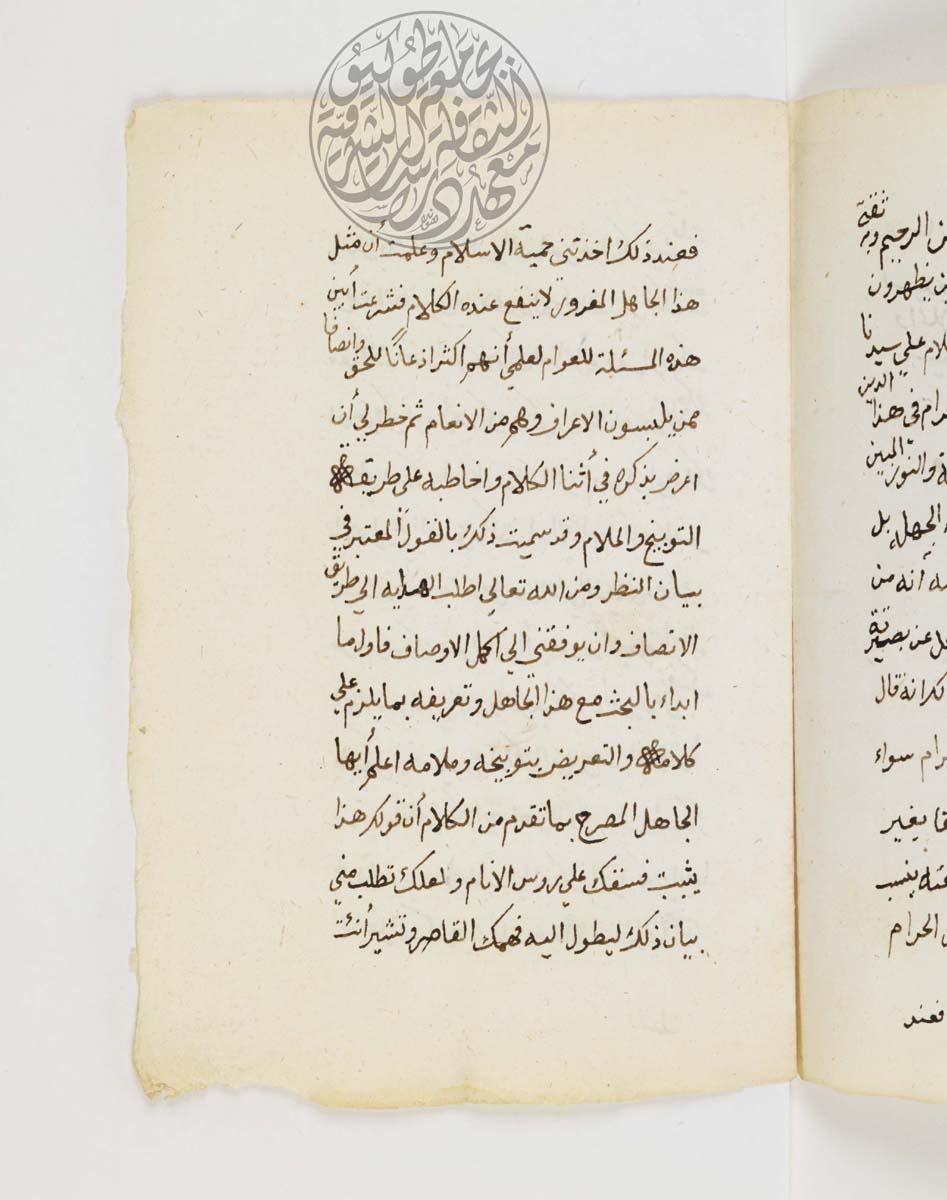 جامعة طوكيو
معهد دراسات الثقافة الشرقية
فعند ذلك اخذتني حمية الاسلام وعلمت أن مثل
هذا الجاهل المغرور لا ينفع عنده الكلام فشرعت أبين
هذه المسئلة للعوام لعلمي أنهم اكثر اذعانًا للحق وانصافا
ممن يلبسون الاعراف وهم من الانعام ثم خطر لي أن
اعرض بذكره في أثنا الكلام واخاطبه على طريقة
التوبيخ والملام وقد سميت ذلك بالقول المعتبر في
بيان النظر ومن الله تعالي اطلب الهدايه الي طريق
الانصاف وان يوفقني الي اكمل الاوصاف فاول ما
ابداء بالبحث مع هذا الجاهل وتعريفه بما يلزم علي
كلامه والتعريض بتوبيخه وملامه اعلم أيها
الجاهل المصرح بما تقدم من الكلام أن قولك هذا
يثبت فسقك علي روس الانام ولعلك تطلب مني
بيان ذلك ليطول اليه فهمك القاصر وتشير أنت
ن الرجيم وبه ثقتي
ين يظهرون
لام علي سيدنا
رام في هذا الدين
ة والنور المبين
الجهله بل
انه من
ل عن بصيرته
انة قال
رام سواء
قا بغير
ينسب
الحرام
فعند